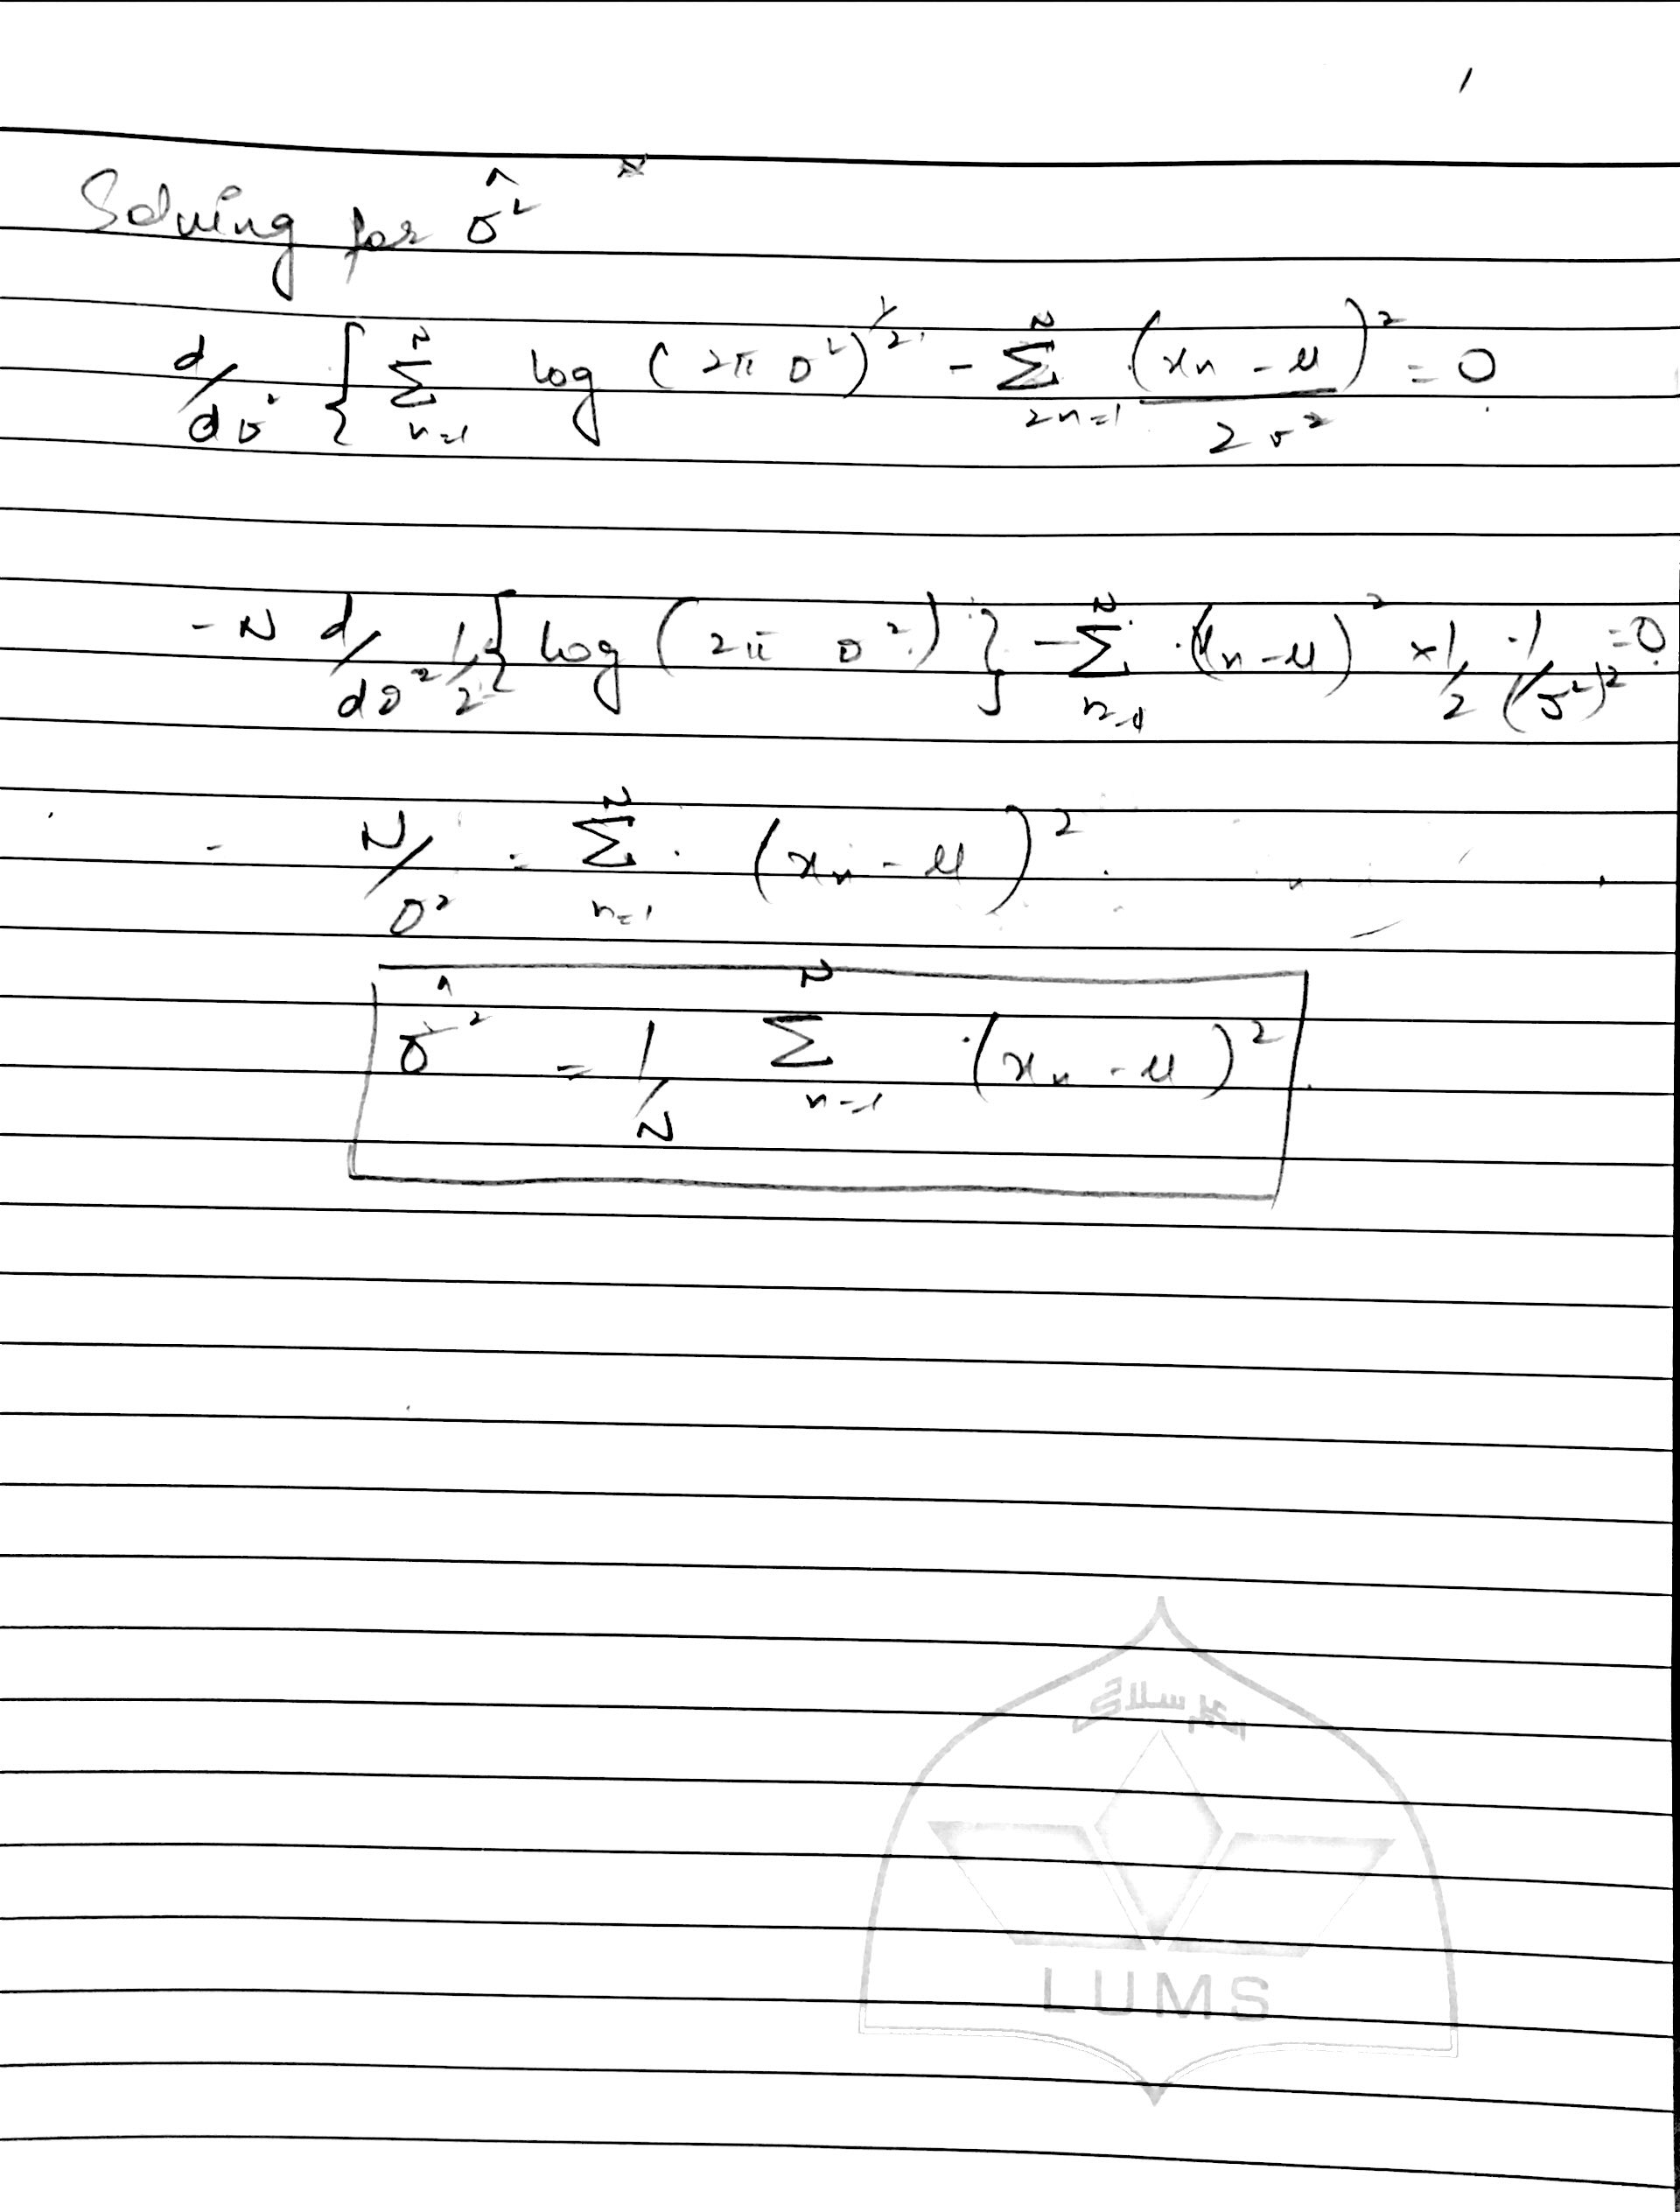 Solving for σ̂²
d/dσ² { Σ_{n=1}^{N} log (2π σ²)^{1/2} - Σ_{2n=1}^{N} (xn - μ)²/2σ² = 0
- N d/dσ² 1/2 { log (2π σ²) } - Σ_{n=1}^{N} (xn - μ)² × 1/2 · -1/(σ²)² = 0
N/σ² = Σ_{n=1}^{N} (xn - μ)²
σ̂² = 1/N Σ_{n=1}^{N} (xn - μ)²
LUMS